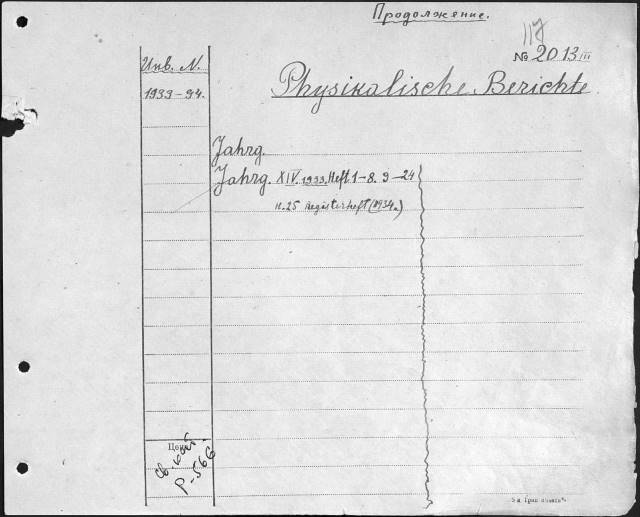 Продолжение.
117
№ 2013 III
Инв. N.
Physikalische Berichte
1933-94.
Jahrg.
Jahrg. XIV. 1933. Heft 1-8. 9-24
H. 25 Registerheft (1934.)
Цена
Р-566